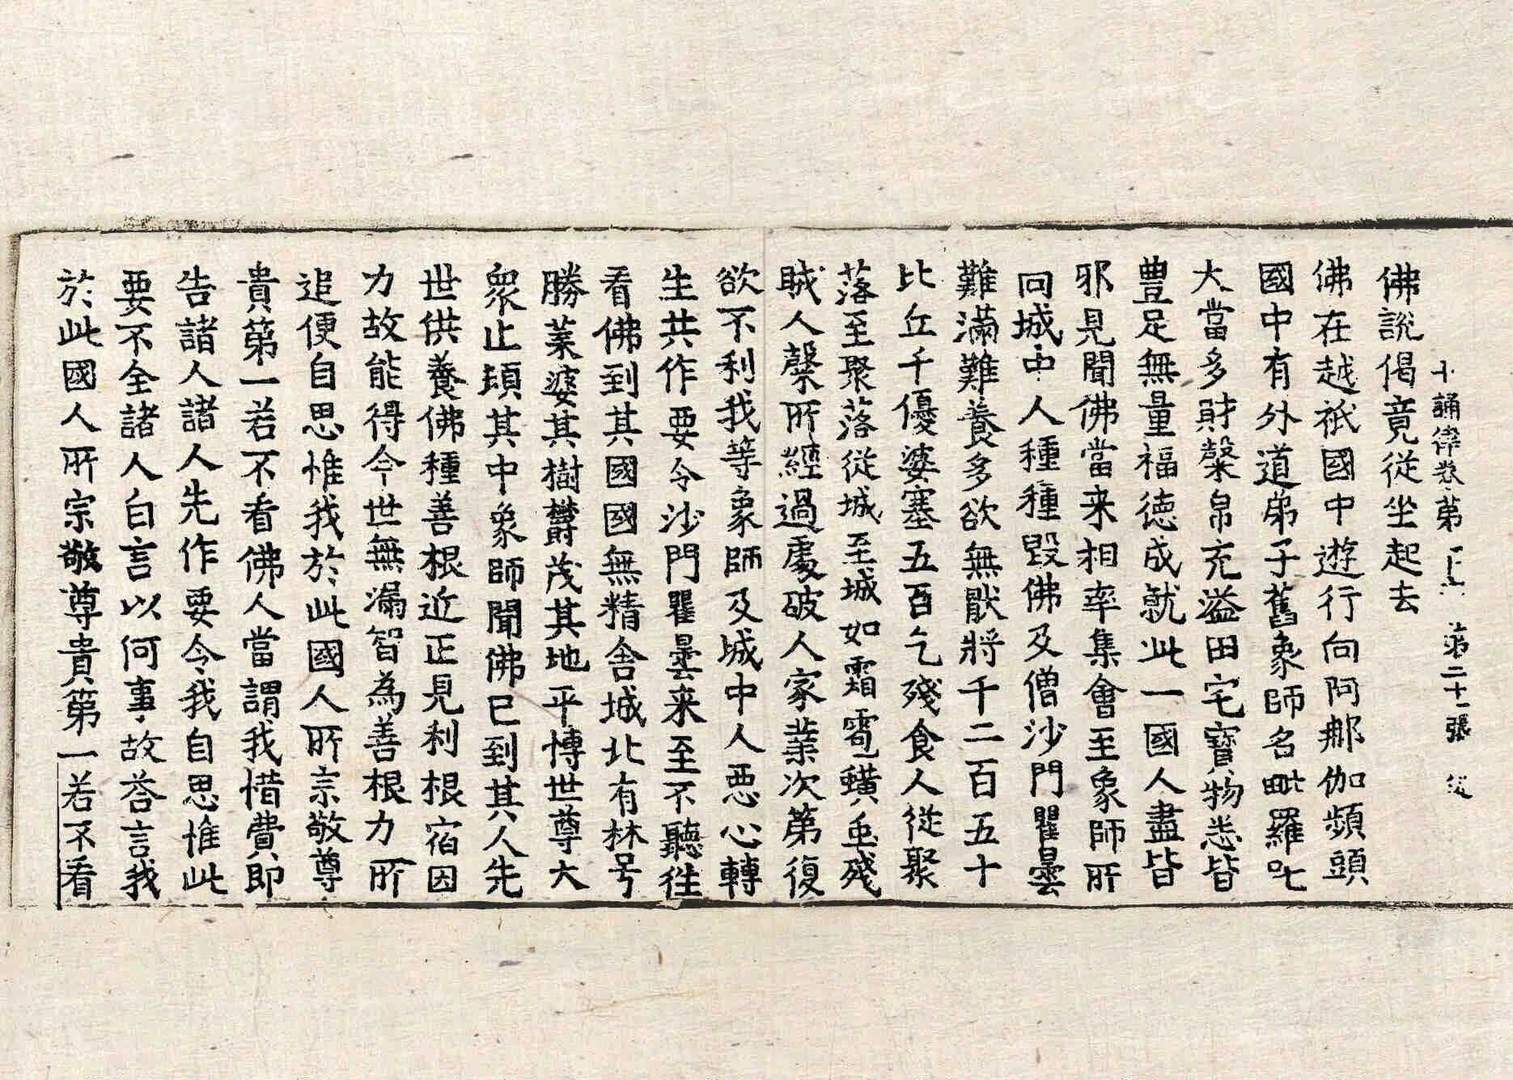 十誦律卷第 第二十一張
佛說偈竟從坐起去
佛在越祇國中遊行向阿那伽頻頭
國中有外道弟子舊象師名毗羅吒
大當多財槃帛充溢田宅寶物悉皆
豊足無量福德成就此一國人盡皆
邪見聞佛當来相率集會至象師所
同城中人種種毀佛及僧沙門瞿曇
難滿難養多欲無猒將千二百五十
比丘千優婆塞五百乞殘食人從聚
落至聚落從城至城如霜雹蟥虫殘
賊人槃所經過處破人家業次第復
欲不利我等象師及城中人惡心轉
生共作要令沙門瞿曇来至不聽徃
看佛到其國國無精舍城北有林号
勝葉婆其樹欝茂其地平博世尊大
眾止頓其中象師聞佛已到其人先
世供養佛種善根近正見利根宿因
力故能得今世無漏智為善根力所
追便自思惟我於此國人所宗敬尊
貴第一若不看佛人當謂我惜費即
告諸人諸人先作要令我自思惟此
要不全諸人白言以何事故荅言我
於此國人所宗敬尊貴第一若不看